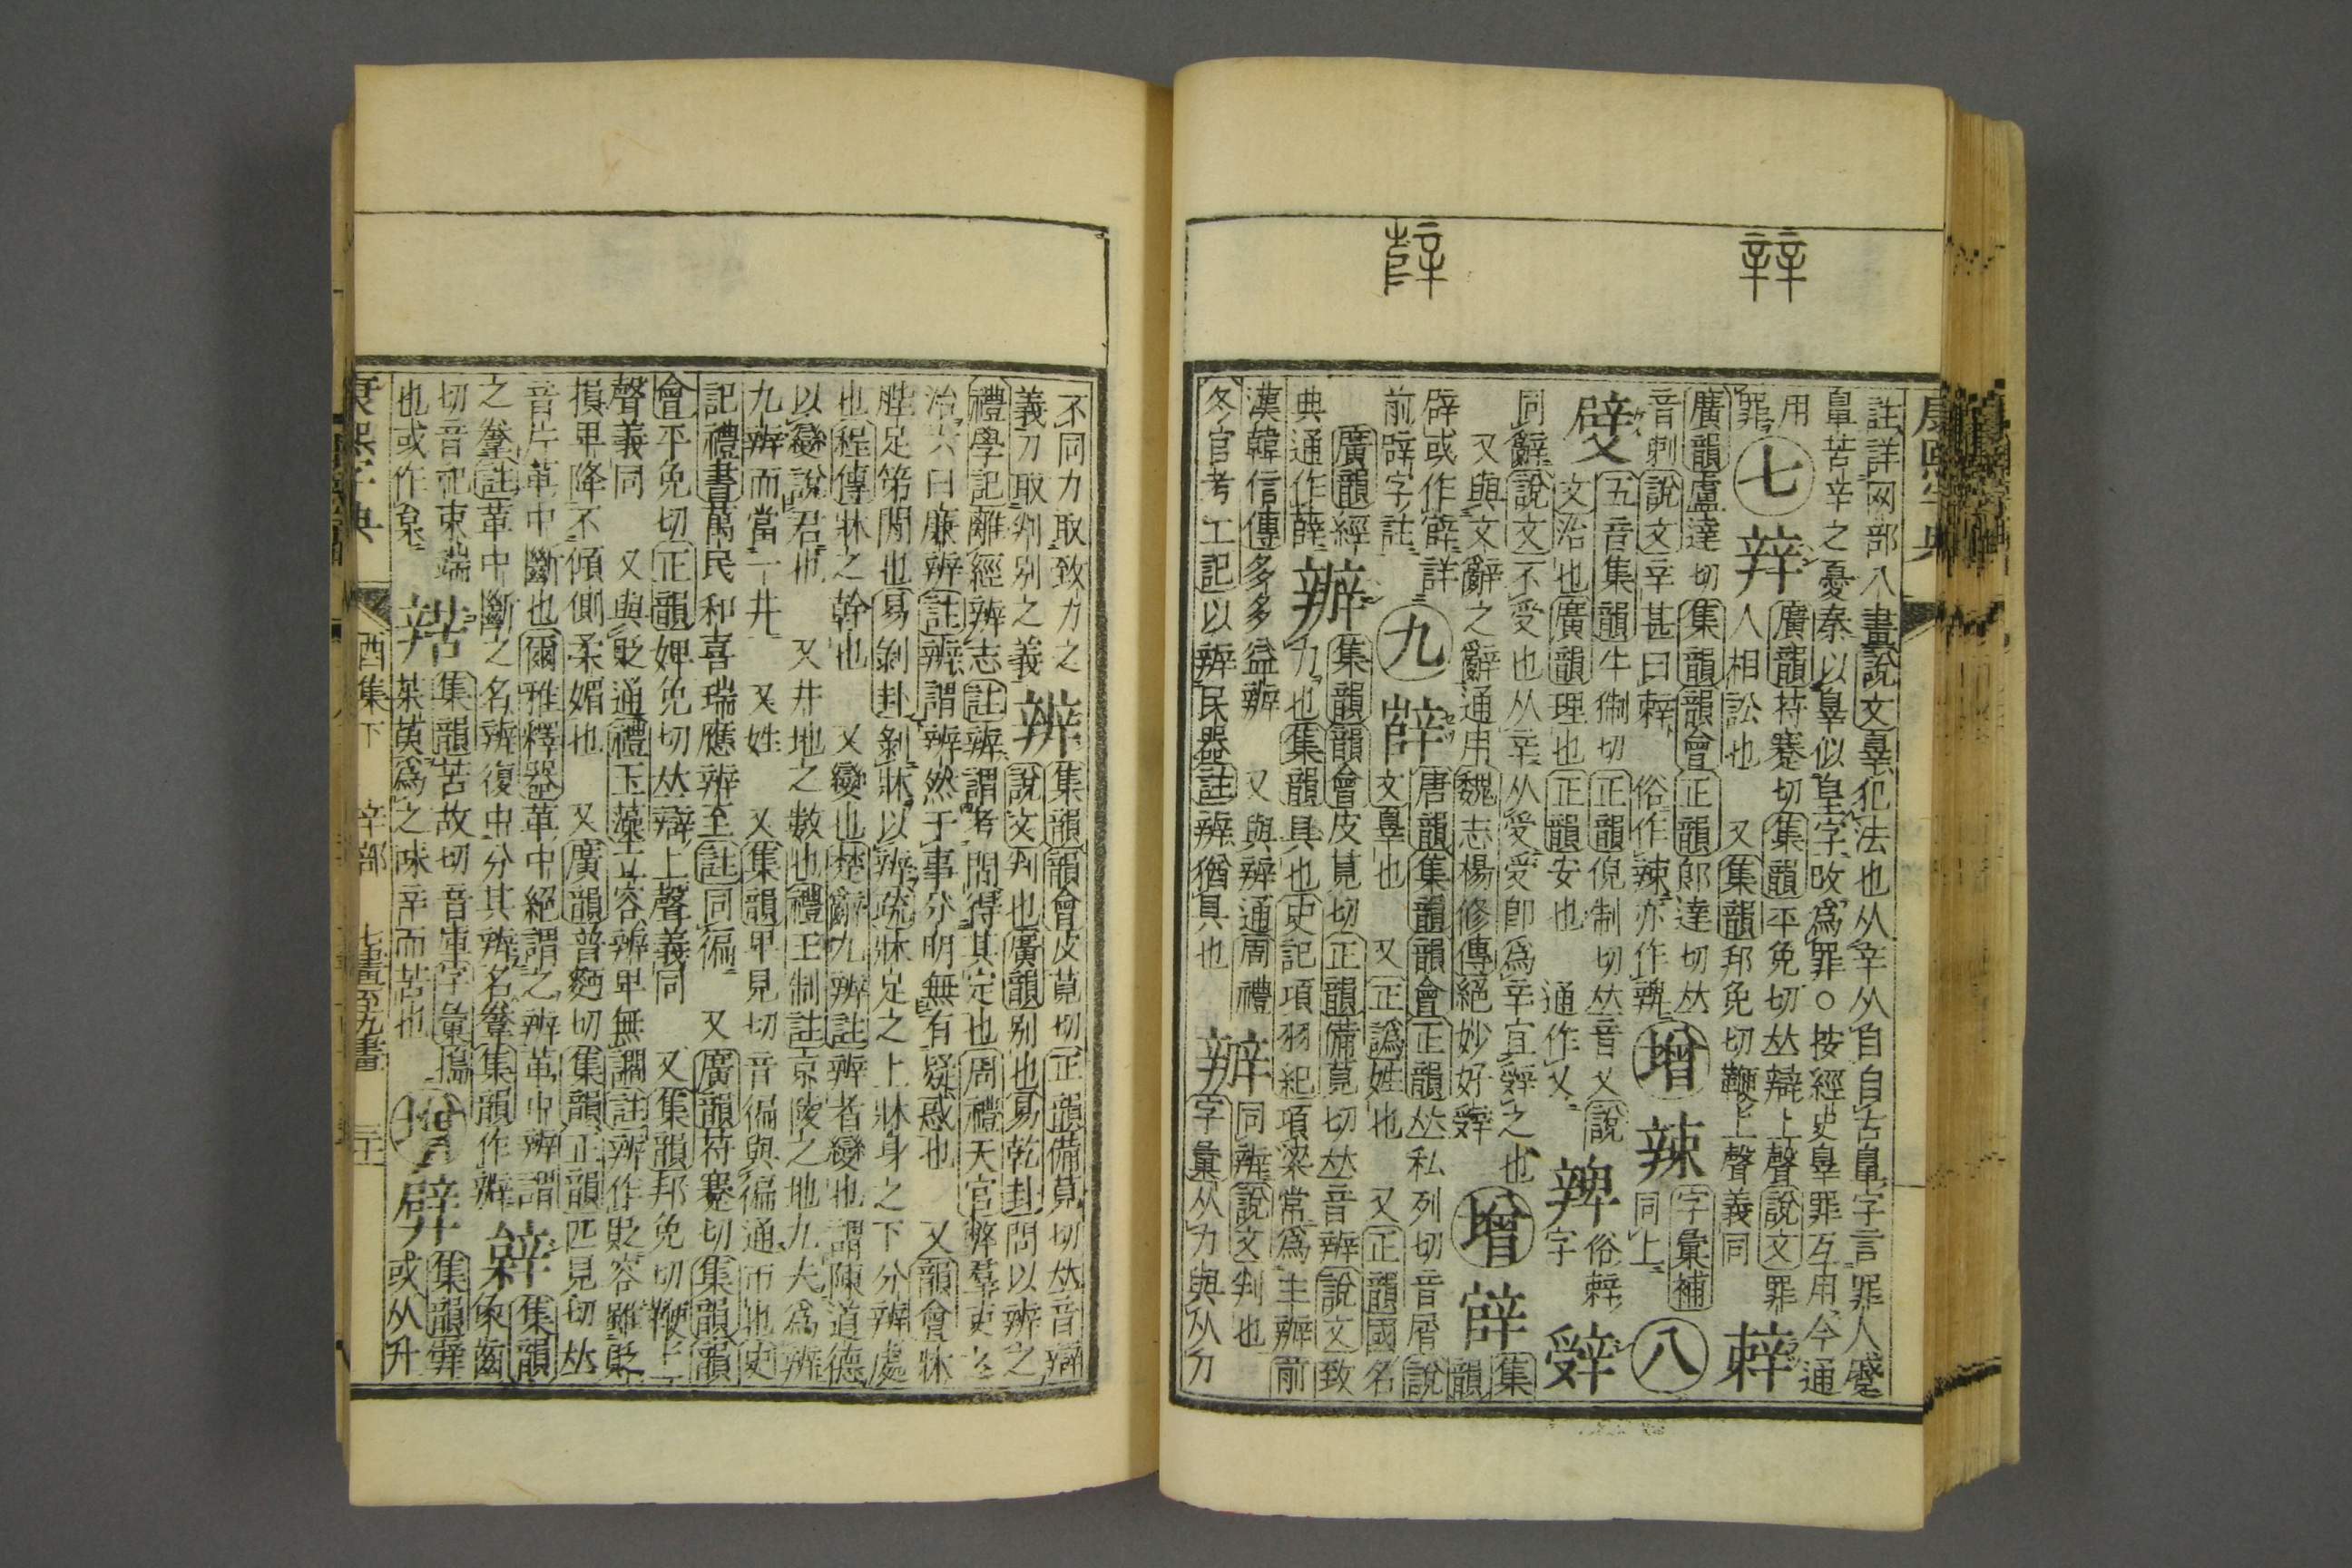 辡
辥
康熙字典
註詳网部八畫說文辠犯法也从辛从自自古辠字言罪人蹙
辠苦辛之憂秦以辠似皇字改爲罪○按經史辠罪互用今通
用
罪
七
辡
廣韻符蹇切集韻平免切𠀤辯上聲說文罪
人相訟也 又集韻邦免切鞭上聲義同
辢
廣韻盧達切集韻韻會正韻郞達切𠀤
音剌說文辛甚曰辢 俗作辣亦作
增
辣
字彙補
同上
八
辟
五音集韻牛制切正韻倪制切𠀤音乂說
文治也廣韻理也正韻安也 通作乂
俗辢
字
辤
同辭說文不受也从辛从受受卽爲辛宜辤之也
又與文辭之辭通用魏志楊修傳絕妙好辤
增
辥
集
韻
辟或作辥詳
前辟字註
九
辥
唐韻集韻韻會正韻𠀤私列切音屑說
文辠也 又正譌姓也 又正韻國名
廣韻經
典通作薛
辦
集韻韻會皮莧切正韻備莧切𠀤音辨說文致
力也集韻具也史記項羽紀項梁常爲主辦前
漢韓信傳多多益辦 又與辨通周禮
冬官考工記以辨民器註辨猶具也
辨
同辨說文判也
字彙从力與从刀
不同力取致力之
義刀取判别之義
辨
集韻韻會皮莧切正韻備莧切𠀤音辯
說文判也廣韻别也易乾卦問以辨之
禮學記離經辨志註辨謂考問得其定也周禮天官弊羣吏之
治六曰廉辨註辨謂辨然于事分明無有疑惑也 又韻會牀
䏶足第閒也易剝卦剝牀以辨疏牀足之上牀身之下分辨處
也程傳牀之幹也 又變也楚辭九辨註辨者變也謂陳道德
以變說君也 又井地之數也禮王制註京陵之地九夫爲辨
九辨而當一井 又姓 又集韻畀見切音徧與徧通帀也史
記禮書萬民和喜瑞應辨至註同徧 又廣韻符蹇切集韻韻
會平免切正韻婢免切𠀤辯上聲義同 又集韻邦免切鞭上
聲義同 又與貶通禮玉藻立容辨卑無讇註辨作貶容雖貶
損卑降不傾側柔媚也 又廣韻普麪切集韻正韻匹見切𠀤
音片革中斷也爾雅釋器革中絕謂之辨革中辨謂
之韏註革中斷之名辨復中分其辨名韏集韻作辧
集韻
象齒
切音祀束端
也或作枲
辝
集韻苦故切音庫字彙搗
茱萸爲之味辛而苦也
增
集韻
或从升
康熙字典
酉集下 辛部 七畫至九畫